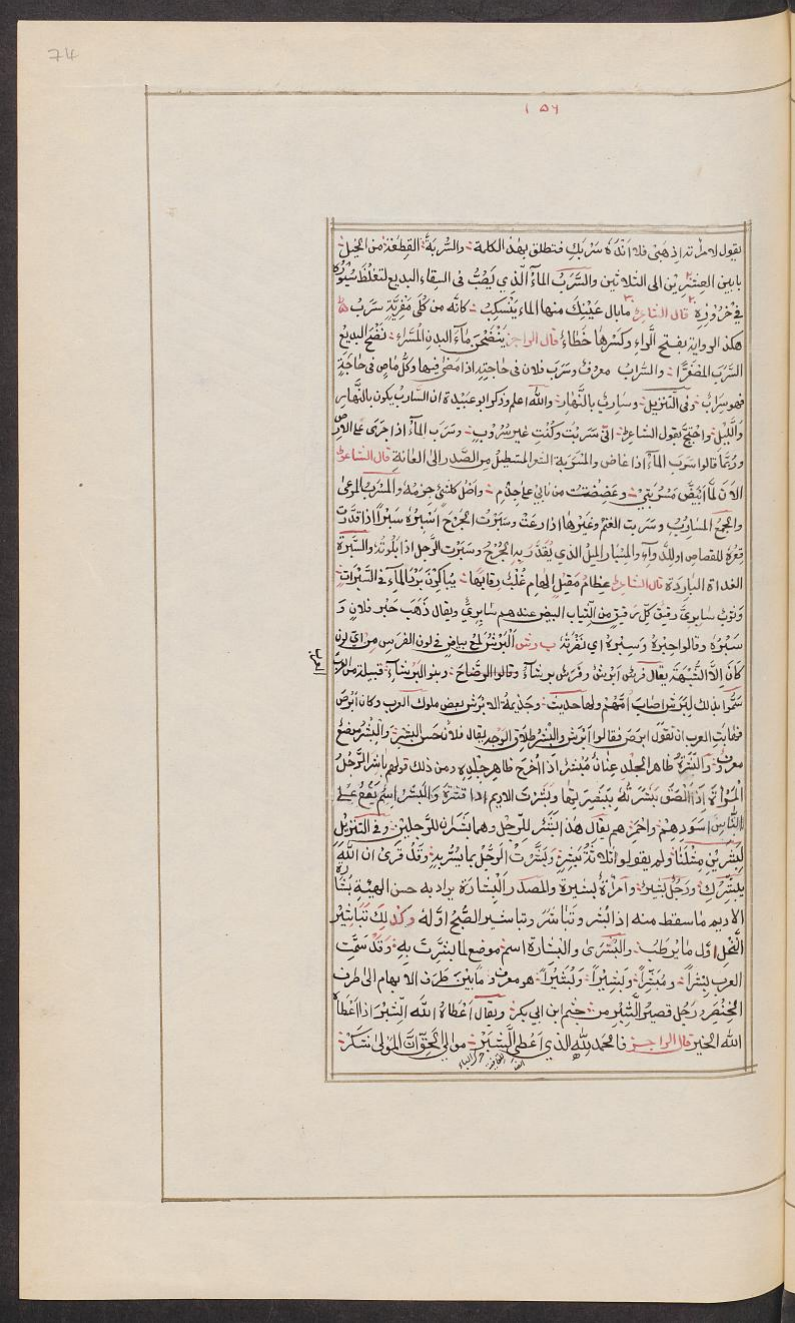 74
١٥٦
يقول لامراته اذهبي فلا انده سربك فتطلق بهذه الكلمة والسُّربة القطعة من الخيل
ما بين العشرين الى الثلاثين والسَّرَبُ الماءُ الّذي يُصَبُّ فى السِقاءِ البديع لتغلظ سُيُوره
في خُرُوزِهِ قال الشاعر ما بال عَيْنِكَ منها الماءُ يَنْسَكِبُ كانّه من كُلَى مَفْرِيَّةٍ سَرَبُ
هكذا الرواية بفتح الراءِ وكسرها خطاءٌ قال الراجز يَنْضَحْنَ ماءَ البدن المُسَرَّا نَضْحَ البديعِ
السَّرَبَ المصفَرَّا والسَّرابُ معروف وسَرَبَ فلان فى حاجتِهِ اذا مضى فيها وكلُّ ماضٍ فى حاجَةٍ
فهو سارب وفى التنزيل وساربٌ بالنَّهار واللّه اعلم وذكر ابو عبيدة ان السارب يكون بالنَّهار
والَّيْل واحْتَجَّ بقول الشاعر انّى سَرَبْتِ وكُنْتِ غير سَرُوبٍ وسَرَبَ الماءُ اذا جرى على الارض
ورُبَّما قالوا سرب الماءُ اذا غاض والمَسْرَبة الشعر المستطيل من الصَّدر الى العانة قال الشاعر
الآنَ لَمَّا ابْيَضَّ مَسْرُبَتِي وعَضِضْتُ من نابي على جِذْمِ واصل كل شئ جِذمه والمَسْرَب المرعى
والجمع المسارب وسربت الغنم وغيرها اذا رعت وسَبَرْتُ الجُرْحَ اَسْبِرُهُ سَبْراً اذا قدَّرت
قعره للقصاص او للدواء والمِسْبار المِيلُ الذي يُقَدَّر به الجُرْحُ وسَبَرْتُ الرَّجل اذا بَلَوْتَهُ والسَّبْرَة
الغداة الباردة قال الشاعر عِظامُ مَقِيلِ الهامِ غُلْبٌ رِقابُها يُباكِرْنَ بَرْدَ الماءِ فى السَّبَراتِ
وثوب سابرىّ رقيق وكل رقيق من الثياب البيض عندهم سابرىّ ويقال ذَهَبَ حِبْر فلان و
سِبْرُه وقالوا حَبْرَهُ وسَبْرَهُ اى نَضْرَتُهُ ب ر ش الْبَرَشُ لُمَع بياضٍ في لون الفَرَس من اىّ لون
كان الّا الشُّهْبَة يقال فرس ابرش وفرس برشاءُ وقالوا الوضّاح وبنو البرشاءِ قبيلة من العرب
العرب
سُمُّوا بذلك لِبَرَشٍ اصاب اُمَّهُمْ ولها حديث وجَذيمة الابرش بعض ملوك العرب وكان ابرص
فهابت العرب ان تقول ابرص فقالوا ابرش والبِشْر طلاقة الوجه يقال فلان حسن البِشر والبِشْر موضع
معروف والبَشَرَةُ ظاهر الجلد عِنانٌ مُبْشَر اذا اُخْرِجَ ظاهر جِلْدِهِ ومن ذلك قولهم باشر الرَّجُلُ
المَرْاَةَ اِذا اَلْصَقَ بَشَرَتَهُ بِبَشَرَتِها وبَشَرْتُ الاديم اذا قشرته والبَشَر اسم يقع على
النّاس اسودِهِمْ واحمرهم يقال هذا البَشَر للرّجل وهما بَشَران للرَّجلين وفى التنزيل
لِبَشَرَيْنِ مِثْلِنا ولم يقولوا ثلاثة بَشَر وبَشَّرْتُ الرَّجُلَ بما يُسَرُّ به وقد قرئ ان اللّه
يبشّرك ورَجُلٌ بشير وامراةٌ بشيرة والمصدر البِشارة يراد به حسن الهيئة بُشارة
الاديم ما سقط منه اذا بُشر وتباشَر وتباشير الصُّبح اوّله وكذلك تَباشِير
النَّخل اوّل ما يرطب والبُشْرى والبِشارة اسم موضع لما بُشِّرتَ بِهِ وقَدْ سمّت
العرب بِشْراً ومُبَشِّراً وبَشِيراً وبُشَيْراً هو معروف ما بين طرف الابهام الى طرف
الخِنْصِر ورجل قصير الشِّبر من جثيم ابن ابي بكر ويقال اَعْطاهُ اللّه الشَّبْرَ اذا اعْطاهُ
اللّه الخير قال الراجز فالحمد للّه الذي اعطى الشَّبَرْ موالى الحقِّ اِنَّ المَوْلى شَكَرْ